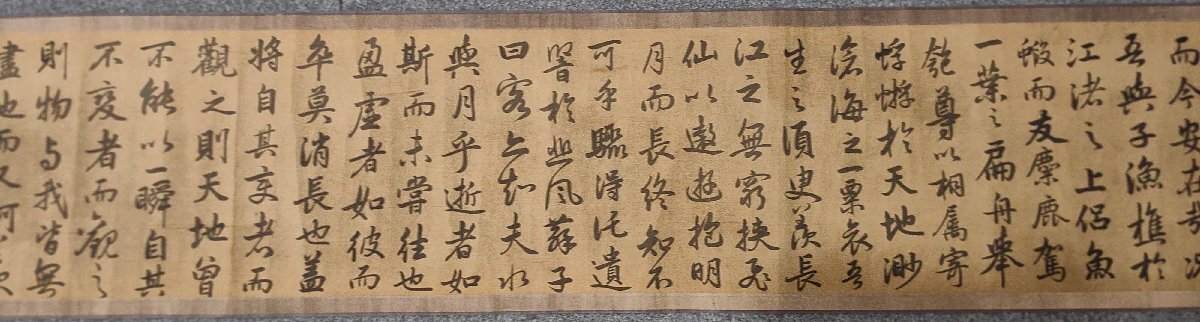 而今安在哉況
吾與子漁樵於
江渚之上侶魚
蝦而友麋鹿駕
一葉之扁舟舉
匏尊以相屬寄
蜉蝣於天地渺
滄海之一粟哀吾
生之須臾羨長
江之無窮挾飛
仙以遨遊抱明
月而長終知不
可乎驟得託遺
響於悲風蘇子
曰客亦知夫水
與月乎逝者如
斯而未嘗往也
盈虛者如彼而
卒莫消長也蓋
將自其變者而
觀之則天地曾
不能以一瞬自其
不變者而觀之
則物与我皆無
盡也而又何羨